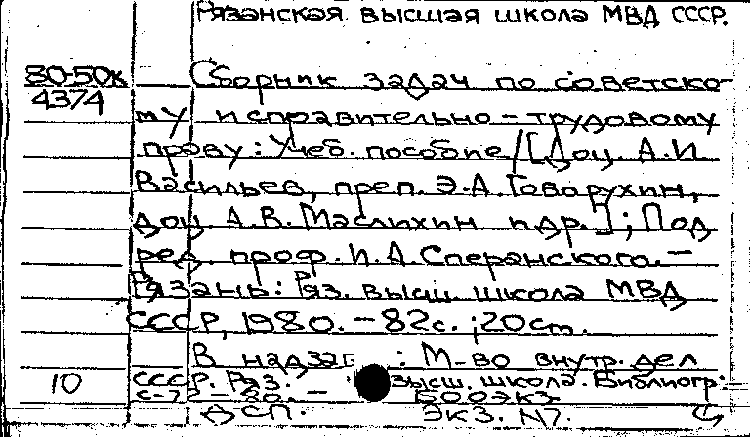 Рязанская высшая школа МВД СССР.
80-50к Сборник задач по советско-
4374 му исправительно-трудовому
праву: Учеб. пособие / [Доц. А.И.
Васильев, преп. Э.А. Говорухин,
доц. А.В. Маслихин и др.]; Под
ред. проф. И.А. Сперанского. —
Рязань: Ряз. высш. школа МВД
СССР, 1980. — 82с.; 20см.
В надзаг.: М-во внутр. дел
10 СССР. Ряз. высш. школа. Библиогр.:
с. 79 — 80. — 500 экз.
ДСП. экз. N7.